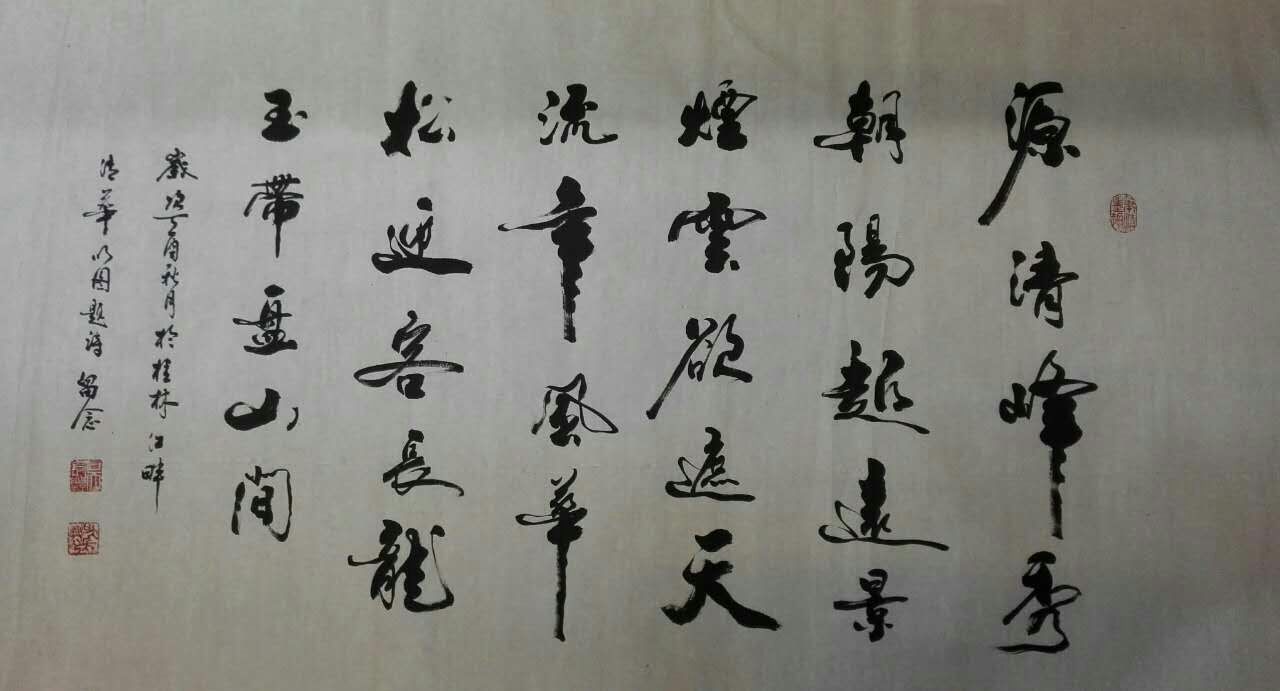 源清峰秀
朝陽越遠景
煙雲欲遮天
流年風華
松迎客長龍
玉帶盤山間
歲次丁酉秋月於桂林江畔
清華以國題詩留念